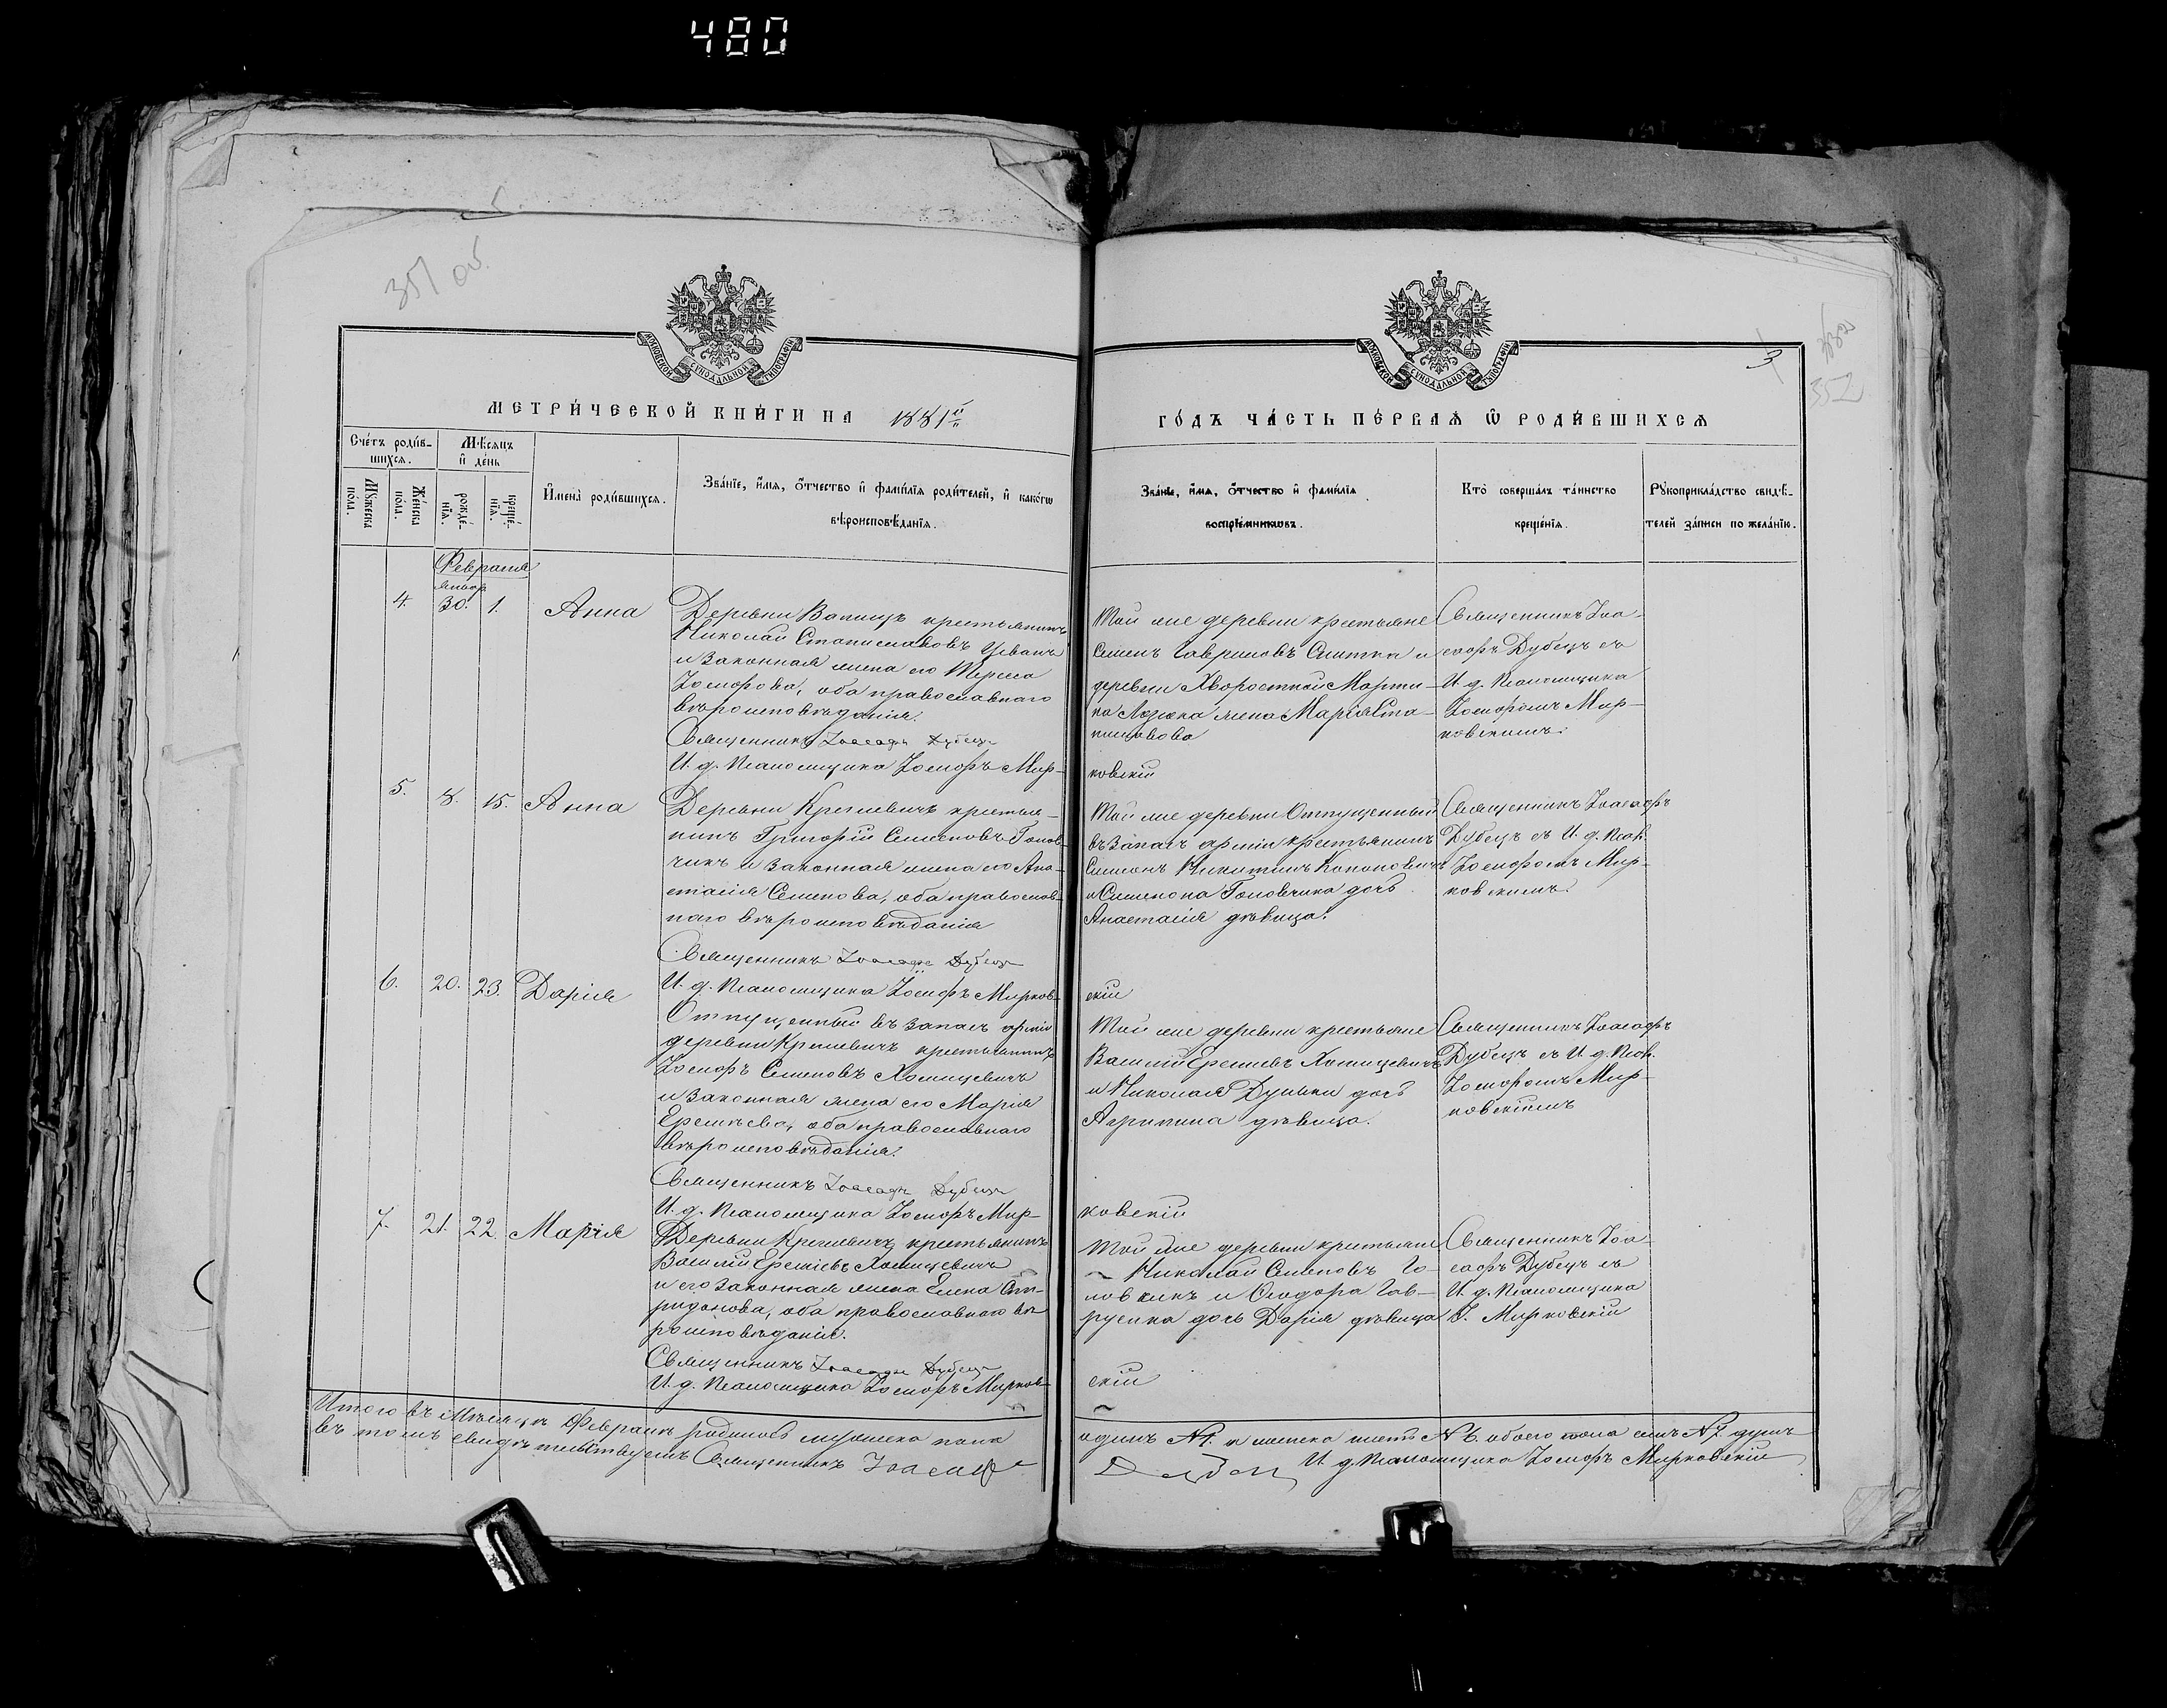 480
351 об.
3
352
МОСКОВСКОЙ СѴНОДАЛЬНОЙ ТѴПОГРАФІИ
МОСКОВСКОЙ СѴНОДАЛЬНОЙ ТѴПОГРАФІИ
МЕТРИ́ЧЕСКОЙ КНИ́ГИ НА 1881й
ГО́ДЪ ЧА́СТЬ ПЕ́РВАѦ Ѡ҆ РОДИ́ВШИХСѦ
Сче́тъ роди́в-
шихсѧ.
Мѣ́сѧцъ
и҆ де́нь
Мꙋ́жеска по́ла.
Же́нска по́ла.
рожде́-нїѧ.
креще́-нїѧ.
И҆мена̀ роди́вшихсѧ.
Зва́нїе, и҆́мѧ, ѻ҆́тчество и҆ фами́лїѧ роди́телей, и҆ како́гѡ
вѣроисповѣ́данїѧ.
Зва́нїе, и҆́мѧ, ѻ҆́тчество и҆ фами́лїѧ
воспрїе́мникѡвъ.
Кто̀ соверша́лъ та́инство
креще́нїѧ.
Рꙋкоприкла́дство свидѣ́-
телей за́писи по жела́нїю.
Февраля
Январ
4. 30. 1. Анна
Деревни крестьянинъ
Николай Станиславовъ
и законная жена его Тереса
Іосифова, оба православнаго
вѣроисповѣданія.
Священникъ Іоасафъ Дубецъ
И. д. Псаломщика Іосифъ Мир-
ковскій
Той же деревни крестьяне
Семенъ Гавриловъ и
деревни Хворостной Марти-
на жена Марія Ста-
ниславова
Священникъ Іоа-
сафъ Дубецъ съ
И. д. Псаломщика
Іосифомъ Мир-
ковскимъ.
5. 8. 15. Анна
Деревни Креглевичъ крестья-
нинъ Григорій Семеновъ Голов-
чикъ и законная жена его Ана-
стасія Семенова, оба православ-
наго вѣроисповѣданія
Священникъ Іоасафъ Дубецъ
И. д. Псаломщика Іосифъ Мирков-
скій
Той же деревни Отпущенный
въ запасъ арміи крестьянинъ
Симеонъ Никитинъ Кононовичъ
и Симеона Головчика дочь
Анастасія дѣвица.
Священникъ Іоасафъ
Дубецъ съ И. д. Псал.
Іосифомъ Мир-
ковскимъ.
6. 20. 23. Дарія
Отпущенный въ запасъ арміи
деревни Креглевичъ крестьянинъ
Іосифъ Семеновъ Хомицевичъ
и законная жена его Марія
Еремѣева, оба православнаго
вѣроисповѣданія.
Священникъ Іоасафъ Дубецъ
И. д. Псаломщика Іосифъ Мир-
ковскій
Той же деревни крестьяне
Василій Еремѣевъ Хомицевичъ
и Николая Дуньки дочь
Агрипина дѣвица.
Священникъ Іоасафъ
Дубецъ съ И. д. Псал.
Іосифомъ Мир-
ковскимъ
7. 21. 22. Марія
Деревни Креглевичъ крестьянинъ
Василій Еремѣевъ Хомицевичъ
и его законная жена Елена Спи-
ридонова, оба православнаго вѣ-
роисповѣданія.
Священникъ Іоасафъ Дубецъ
И. д. Псаломщика Іосифъ Мирков-
скій
Той же деревни крестьяне
Николай Семеновъ Го-
ловчикъ и Ѳеодора Гав-
русика дочь Дарія дѣвица
Священникъ Іоа-
сафъ Дубецъ съ
И. д. Псаломщика
І. Мирковскій
Итого въ мѣсяцѣ Февралѣ родилось мужеска пола
одинъ №1. и женска шесть №6. обоего пола семь №7. душъ
въ томъ свидѣтельствуемъ Священникъ Іоасафъ
Дубецъ И. д. Псаломщика Іосифъ Мирковскій